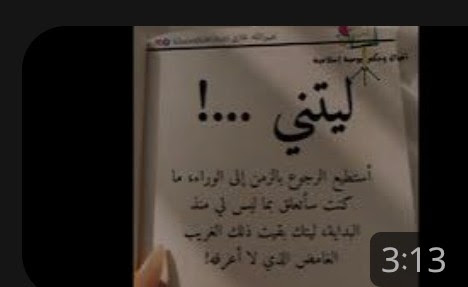 أقوال وحكم يومية إسلامية
ليتني ...!
أستطيع الرجوع بالزمن إلى الوراء، ما
كنت سأتعلق بما ليس لي منذ
البداية، ليتك بقيت ذلك الغريب
الغامض الذي لا أعرفه!
3:13